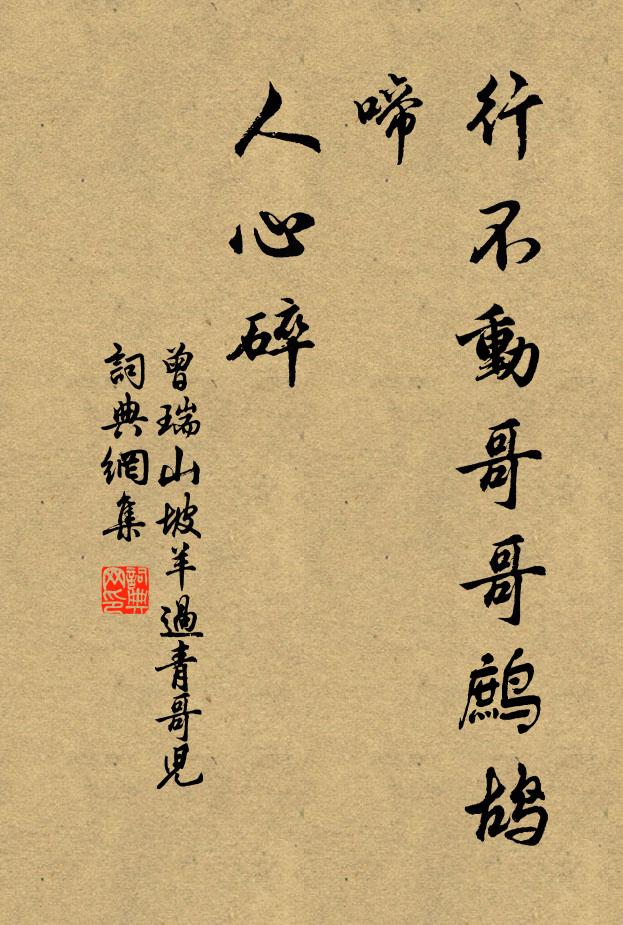 行不動哥哥鷓鴣
啼
人心碎
曾瑞山坡羊過青哥兒
詞典網集
詞典网印